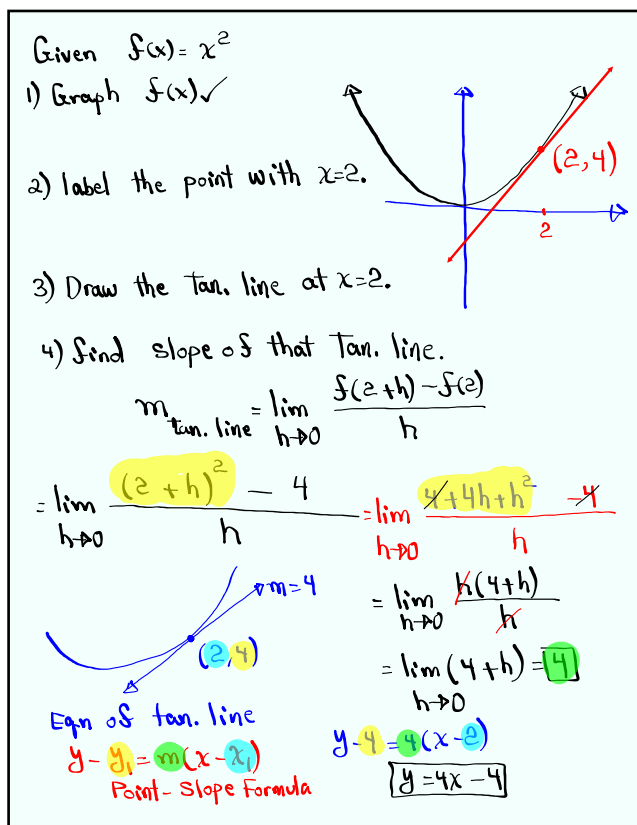 Given f(x) = x²
1) Graph f(x) ✓
(2,4)
2) label the point with x=2.
2
3) Draw the Tan. line at x=2.
4) find slope of that Tan. line.
m tan. line = lim h→0 f(2+h) - f(2) / h
= lim h→0 (2+h)² - 4 / h = lim h→0 4+4h+h² - 4 / h
= lim h→0 h(4+h) / h
m=4
(2,4)
= lim h→0 (4+h) = 4
Eqn of tan. line
y - y₁ = m(x - x₁)
Point-Slope Formula
y-4 = 4(x-2)
y = 4x - 4